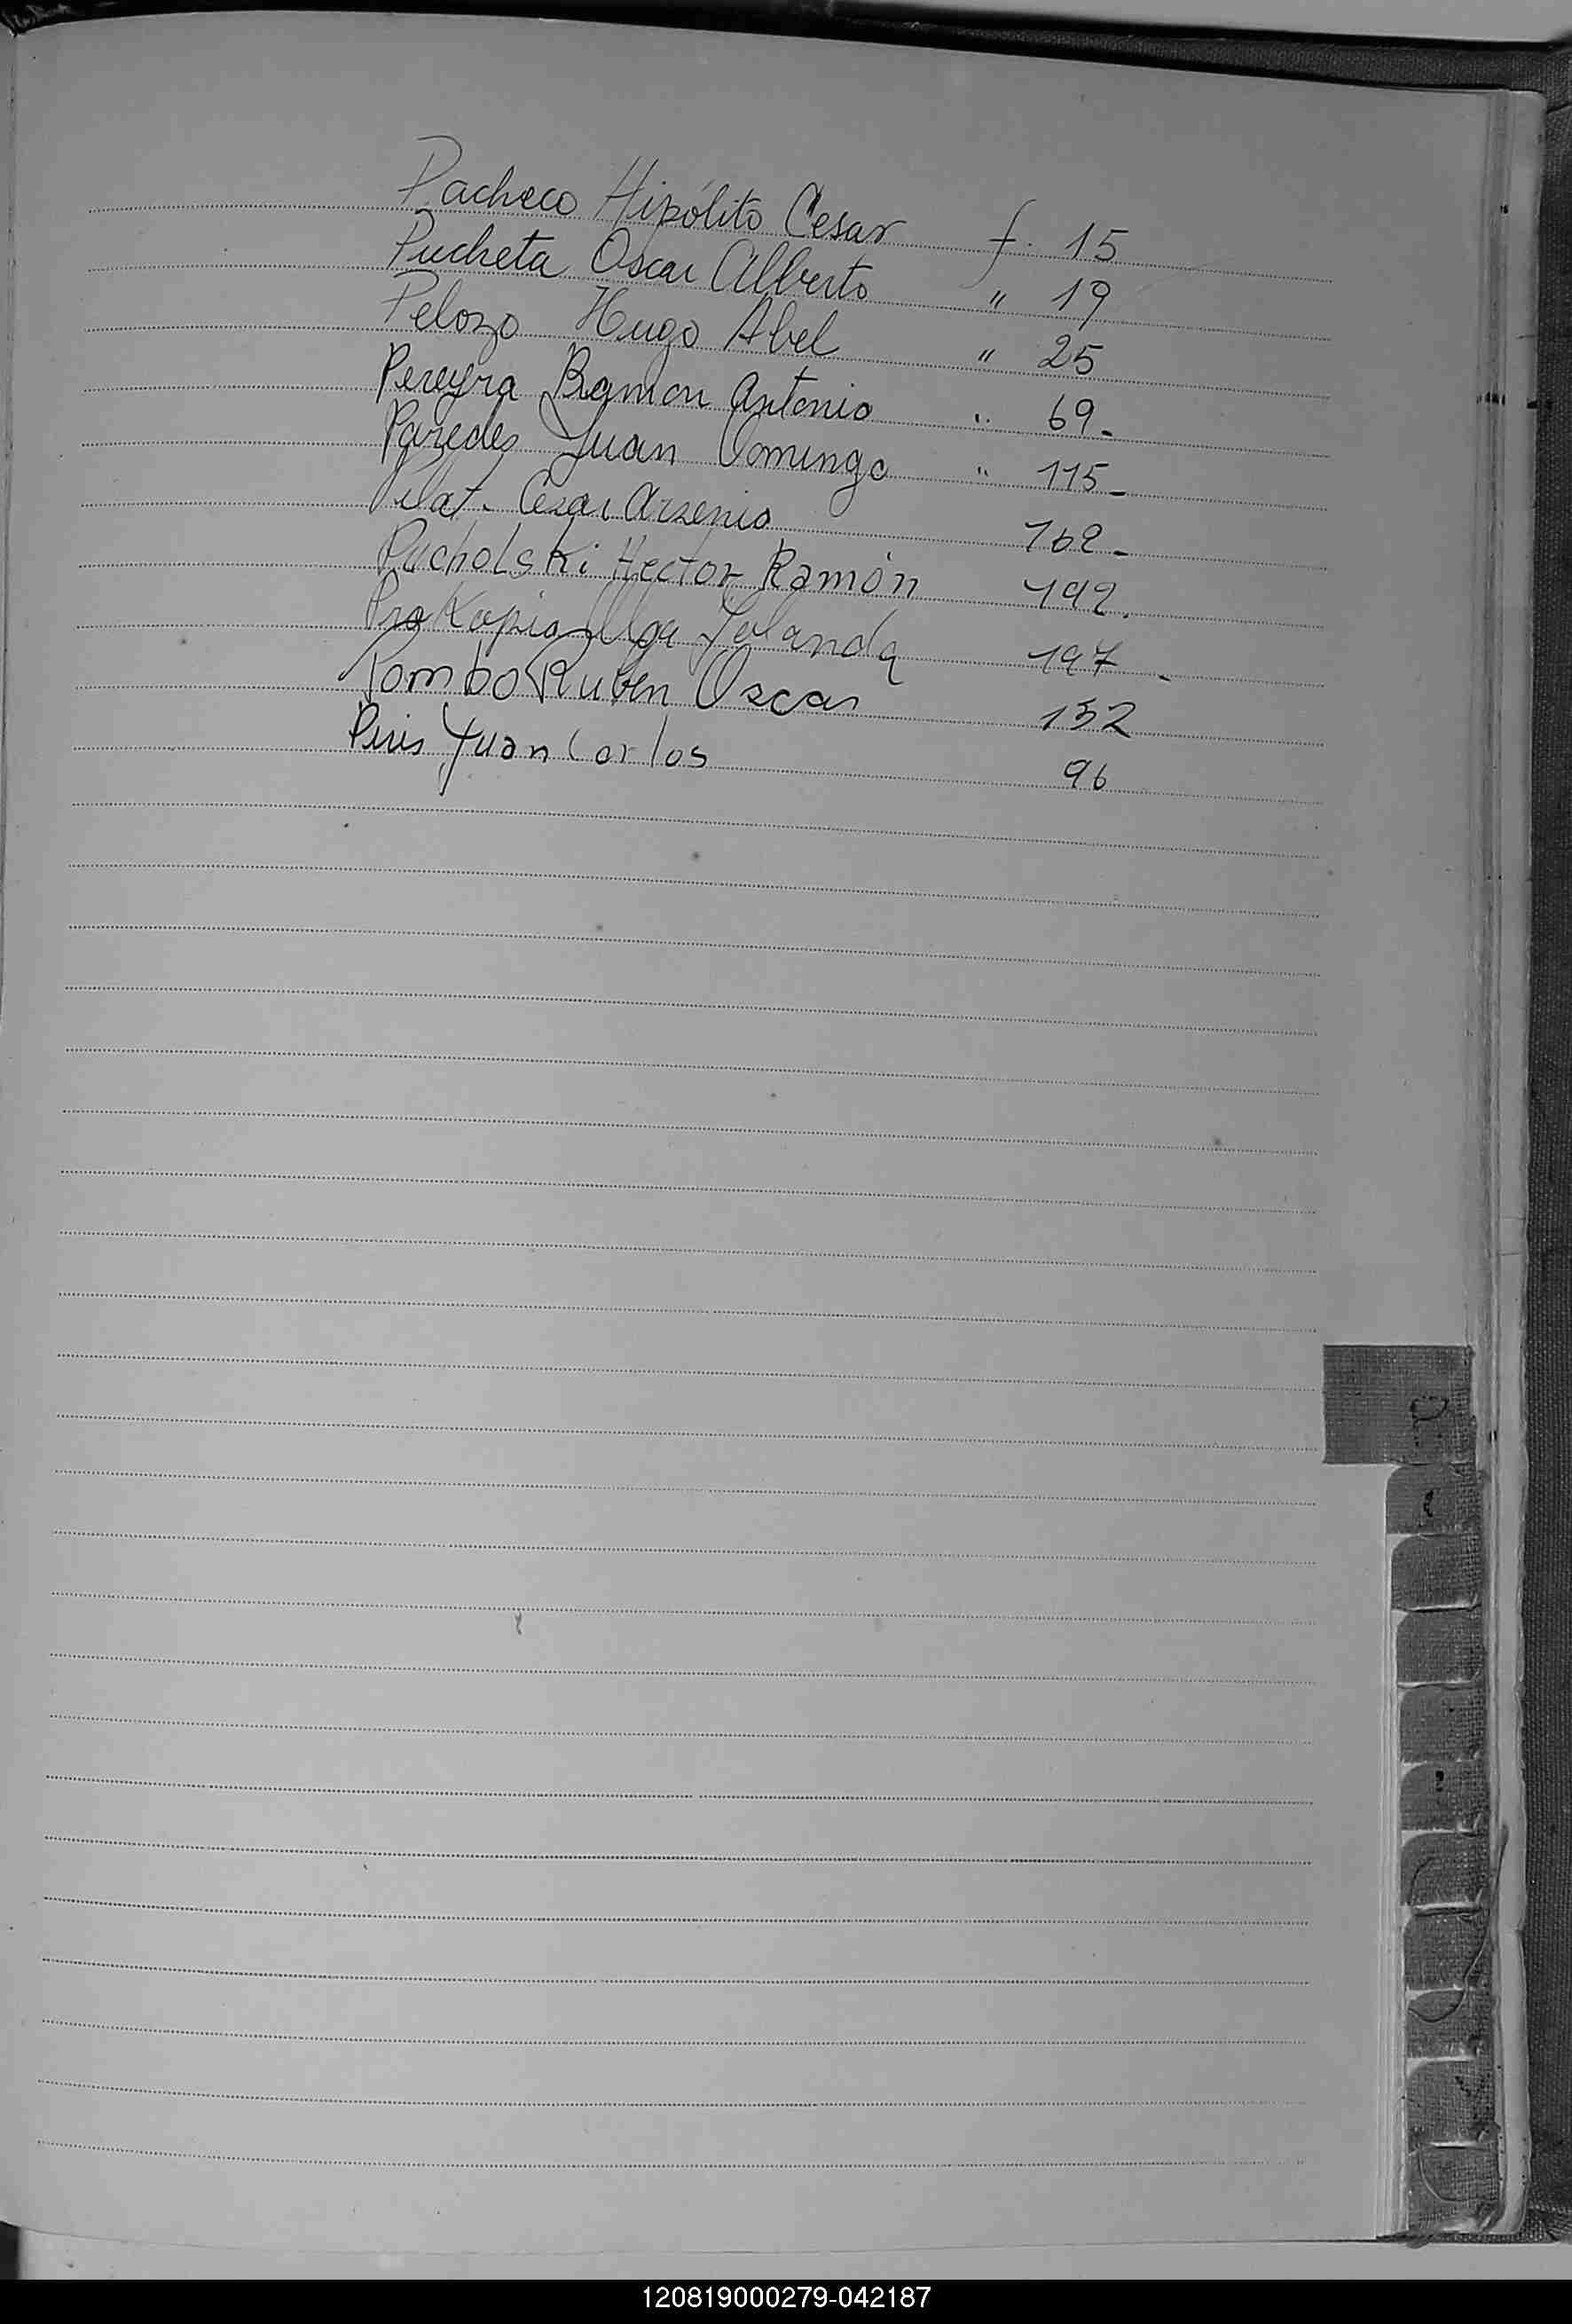 Pacheco Hipólito Cesar f. 15
Pucheta Oscar Alberto " 19
Pelozo Hugo Abel " 25
Pereyra Ramon Antonio " 69-
Paredes Juan Domingo " 115-
Pilat. Cesar Arsenio 162-
Pucholski Hector Ramón 192.
Prokopio Olga Yolanda 197-
Pombo Ruben Oscar 132
Piris Juan Carlos 96
P
120819000279-042187